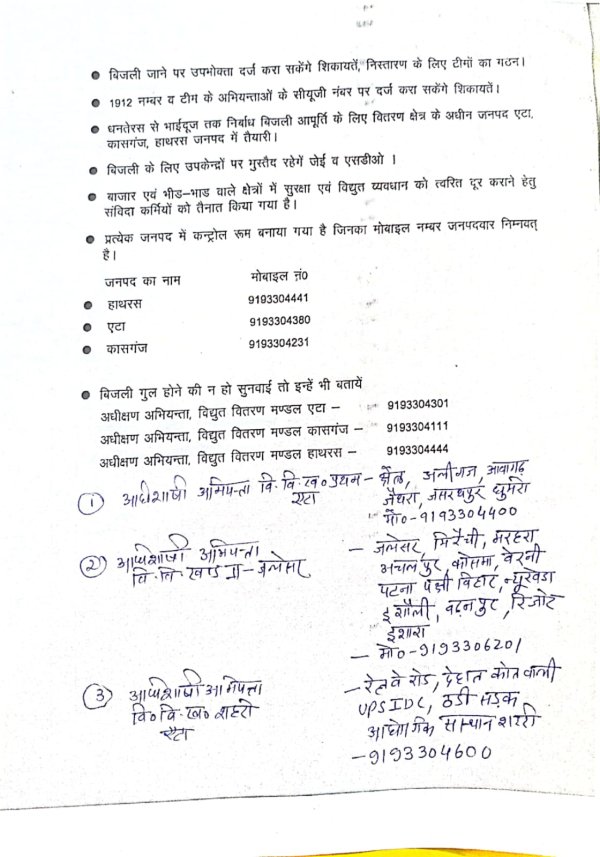 ● बिजली जाने पर उपभोक्ता दर्ज करा सकेंगे शिकायतें, निस्तारण के लिए टीमों का गठन।
● 1912 नम्बर व टीम के अभियन्ताओं के सीयूजी नंबर पर दर्ज करा सकेंगे शिकायतें।
● धनतेरस से भाईदूज तक निर्बाध बिजली आपूर्ति के लिए वितरण क्षेत्र के अधीन जनपद एटा,
कासगंज, हाथरस जनपद में तैयारी।
● बिजली के लिए उपकेन्द्रों पर मुस्तैद रहेगें जेई व एसडीओ ।
● बाजार एवं भीड–भाड वाले क्षेत्रों में सुरक्षा एवं विद्युत व्यवधान को त्वरित दूर कराने हेतु
संविदा कर्मियों को तैनात किया गया है।
● प्रत्येक जनपद में कन्ट्रोल रूम बनाया गया है जिनका मोबाइल नम्बर जनपदवार निम्नवत्
है।
जनपद का नाम मोबाइल नं0
● हाथरस 9193304441
● एटा 9193304380
● कासगंज 9193304231
● बिजली गुल होने की न हो सुनवाई तो इन्हें भी बतायें
अधीक्षण अभियन्ता, विद्युत वितरण मण्डल एटा – 9193304301
अधीक्षण अभियन्ता, विद्युत वितरण मण्डल कासगंज – 9193304111
अधीक्षण अभियन्ता, विद्युत वितरण मण्डल हाथरस – 9193304444
① अधिशाषी अभियन्ता वि. वि. ख० प्रथम – अलीगंज, अवागढ़
एटा जैथरा, जसरथपुर, धुमरी
मो०-9193304400
② अधिशाषी अभियन्ता – जलेसर, मिरैची, मरहरा
वि. वि. खण्ड II – जलेसर अचलपुर, कोसमा, वेरनी
पटना पक्षी विहार, न्यूखेडा
ईशौली, वदनपुर, रिजोर
ईशारा
– मो०-9193306201
③ अधिशाषी अभियन्ता – रेलवे रोड, देहात कोतवाली
वि० वि० ख० शहरी UPSIDC, ठंडी सड़क
एटा औद्योगिक सस्थान शहरी
– 9193304600